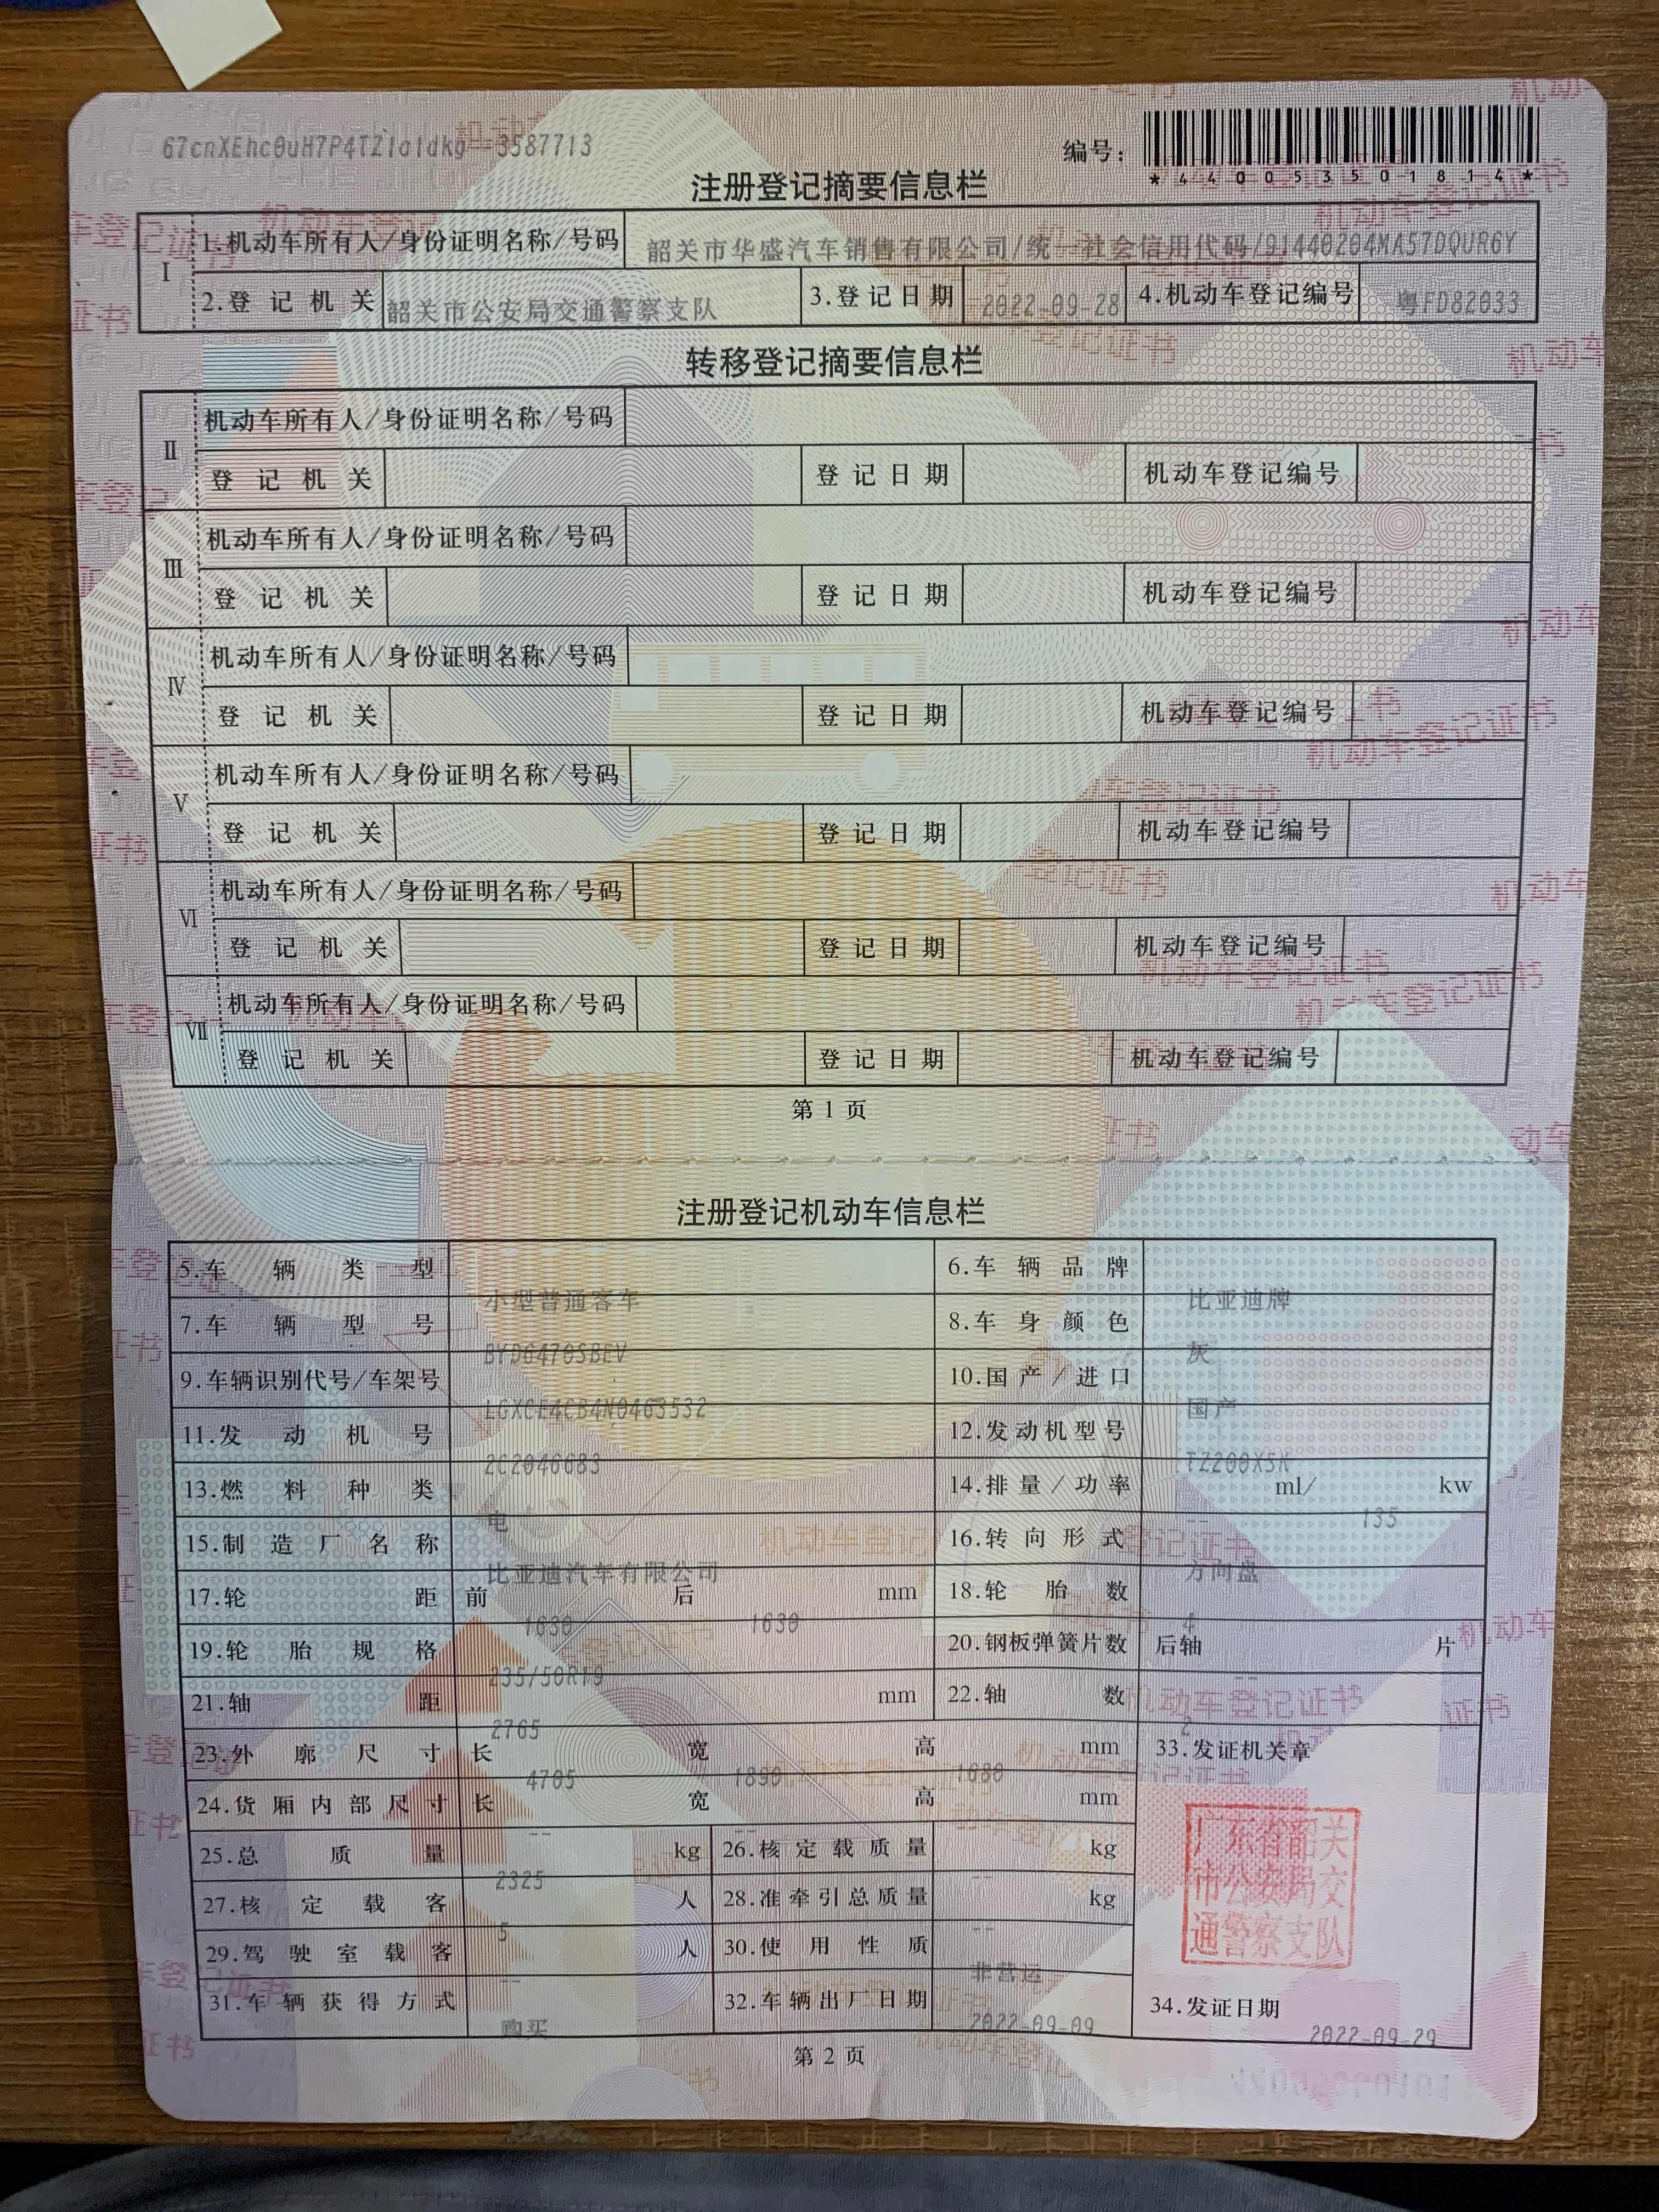 67cnXEhc0uH7P4TZ1a1dkg==3587713
编号：
*440053501814*
注册登记摘要信息栏
Ⅰ 1.机动车所有人/身份证明名称/号码 韶关市华盛汽车销售有限公司/统一社会信用代码/91440204MA57DQUR6Y
2.登记机关 韶关市公安局交通警察支队 3.登记日期 2022-09-28 4.机动车登记编号 粤FD82033
转移登记摘要信息栏
Ⅱ 机动车所有人/身份证明名称/号码
登记机关 登记日期 机动车登记编号
Ⅲ 机动车所有人/身份证明名称/号码
登记机关 登记日期 机动车登记编号
Ⅳ 机动车所有人/身份证明名称/号码
登记机关 登记日期 机动车登记编号
Ⅴ 机动车所有人/身份证明名称/号码
登记机关 登记日期 机动车登记编号
Ⅵ 机动车所有人/身份证明名称/号码
登记机关 登记日期 机动车登记编号
Ⅶ 机动车所有人/身份证明名称/号码
登记机关 登记日期 机动车登记编号
第 1 页
注册登记机动车信息栏
5.车辆类型 小型普通客车 6.车辆品牌 比亚迪牌
7.车辆型号 BYD6470SBEV 8.车身颜色 灰
9.车辆识别代号/车架号 LGXCE4CB4N0463532 10.国产/进口 国产
11.发动机号 2C2046683 12.发动机型号 TZ200XSK
13.燃料种类 电 14.排量/功率 -- ml/ 135 kw
15.制造厂名称 比亚迪汽车有限公司 16.转向形式 方向盘
17.轮距 前 1630 后 1630 mm 18.轮胎数 4
19.轮胎规格 235/50R19 20.钢板弹簧片数 后轴 -- 片
21.轴距 2765 mm 22.轴数 2
23.外廓尺寸 长 4705 宽 1890 高 1680 mm 33.发证机关章
24.货厢内部尺寸 长 -- 宽 高 mm
广东省韶关
市公安局交
通警察支队
25.总质量 2325 kg 26.核定载质量 -- kg
27.核定载客 5 人 28.准牵引总质量 -- kg
29.驾驶室载客 -- 人 30.使用性质 非营运
31.车辆获得方式 购买 32.车辆出厂日期 2022-09-09 34.发证日期 2022-09-29
第 2 页